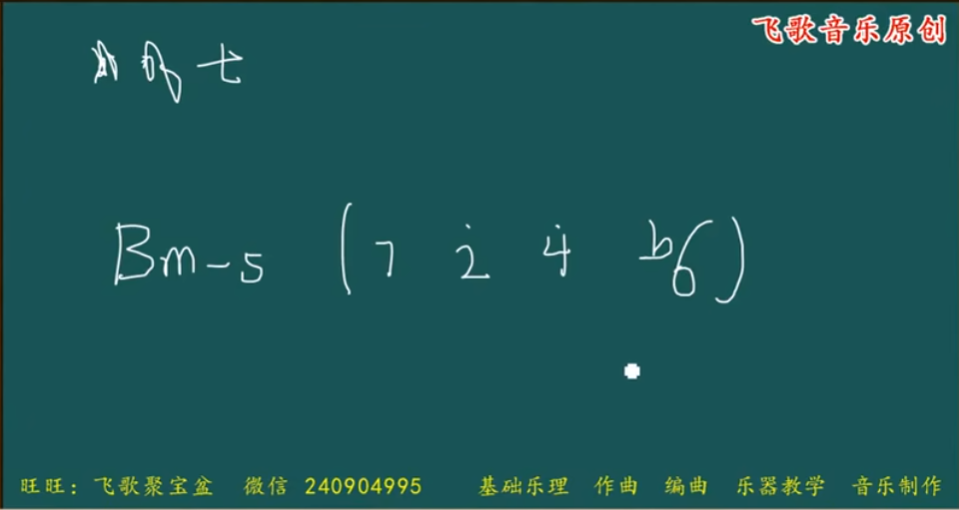 飞歌音乐原创
减减七
Bm-5 (7 2̇ 4̇ b6)
旺旺:飞歌聚宝盆 微信 240904995 基础乐理 作曲 编曲 乐器教学 音乐制作